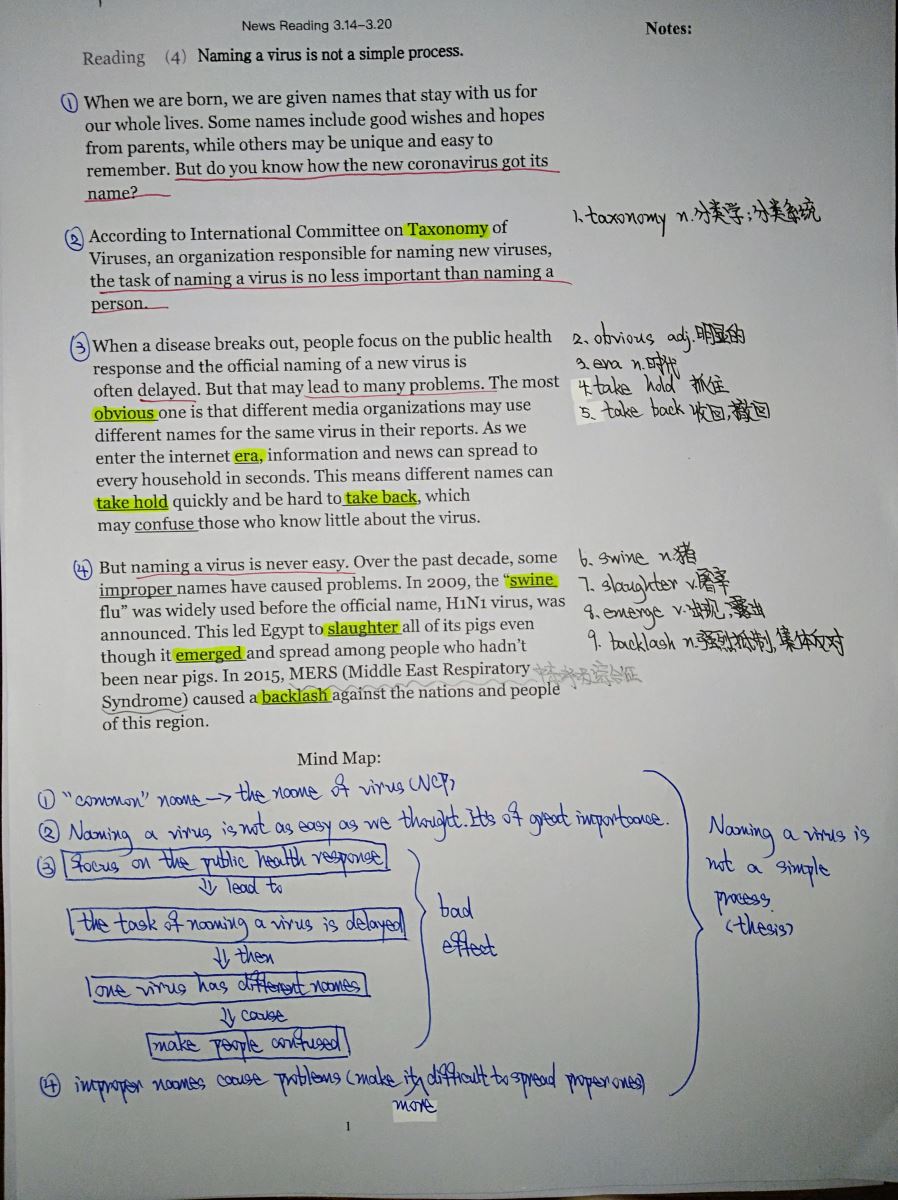 News Reading 3.14–3.20
Notes:
Reading (4) Naming a virus is not a simple process.
① When we are born, we are given names that stay with us for
our whole lives. Some names include good wishes and hopes
from parents, while others may be unique and easy to
remember. But do you know how the new coronavirus got its
name?
1. taxonomy n.分类学;分类系统
② According to International Committee on Taxonomy of
Viruses, an organization responsible for naming new viruses,
the task of naming a virus is no less important than naming a
person.
③ When a disease breaks out, people focus on the public health
response and the official naming of a new virus is
often delayed. But that may lead to many problems. The most
obvious one is that different media organizations may use
different names for the same virus in their reports. As we
enter the internet era, information and news can spread to
every household in seconds. This means different names can
take hold quickly and be hard to take back, which
may confuse those who know little about the virus.
2. obvious adj.明显的
3. era n.时代
4. take hold 抓住
5. take back 收回,撤回
④ But naming a virus is never easy. Over the past decade, some
improper names have caused problems. In 2009, the “swine
flu” was widely used before the official name, H1N1 virus, was
announced. This led Egypt to slaughter all of its pigs even
though it emerged and spread among people who hadn’t
been near pigs. In 2015, MERS (Middle East Respiratory
Syndrome) caused a backlash against the nations and people
of this region.
6. swine n.猪
7. slaughter v.屠宰
8. emerge v.出现,露出
9. backlash n.强烈抵制,集体反对
Mind Map:
① "common" name → the name of virus (NCP)
② Naming a virus is not as easy as we thought. It's of great importance.
③ focus on the public health response
⇓ lead to
the task of naming a virus is delayed
⇓ then
one virus has different names
⇓ cause
make people confused
bad
effect
④ improper names cause problems (make it more difficult to spread proper ones)
Naming a virus is
not a simple
process.
(thesis)
1